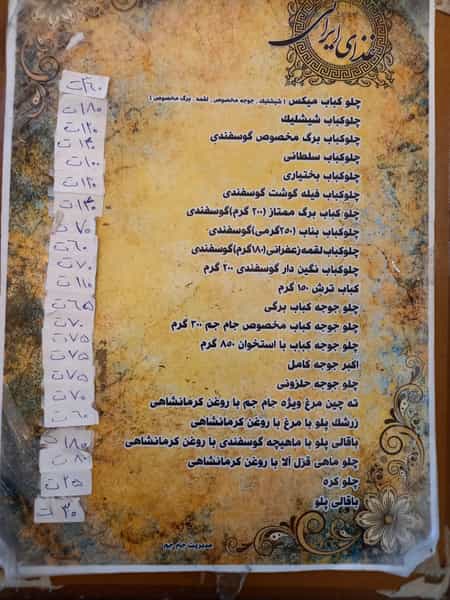 غذای ایرانی
چلو کباب میکس ( شیشلیک . جوجه مخصوص . لقمه . برگ مخصوص )
چلوکباب شیشلیک
چلوکباب برگ مخصوص گوسفندی
چلوکباب سلطانی
چلوکباب بختیاری
چلوکباب فیله گوشت گوسفندی
چلو کباب برگ ممتاز (۲۰۰ گرم)گوسفندی
چلوکباب بناب (۲۵۰گرمی)گوسفندی
چلوکباب لقمه زعفرانی(۱۸۰گرم)گوسفندی
چلوکباب نگین دار گوسفندی ۲۰۰ گرم
کباب ترش ۱۵۰ گرم
چلو جوجه کباب برگی
چلو جوجه کباب مخصوص جام جم ۳۰۰ گرم
چلو جوجه کباب با استخوان ۸۵۰ گرم
اکبر جوجه کامل
چلو جوجه حلزونی
ته چین مرغ ویژه جام جم با روغن کرمانشاهی
زرشک پلو با مرغ با روغن کرمانشاهی
باقالی پلو با ماهیچه گوسفندی با روغن کرمانشاهی
چلو ماهی قزل آلا با روغن کرمانشاهی
چلو کره
باقالی پلو
۱۸۰ت
۱۲۰ت
۱۳۰ت
۱۰۰ت
۱۲۰ت
۱۳۰ت
۷۰ت
۶۰ت
۷۰ت
۱۱۰ت
۶۵ت
۷۰ت
۷۵ت
۷۵ت
۷۵ت
۷۰ت
۶۰ت
۱۸۰ت
۸۰ت
۲۵ت
۳۰ت
مدیریت جام جم